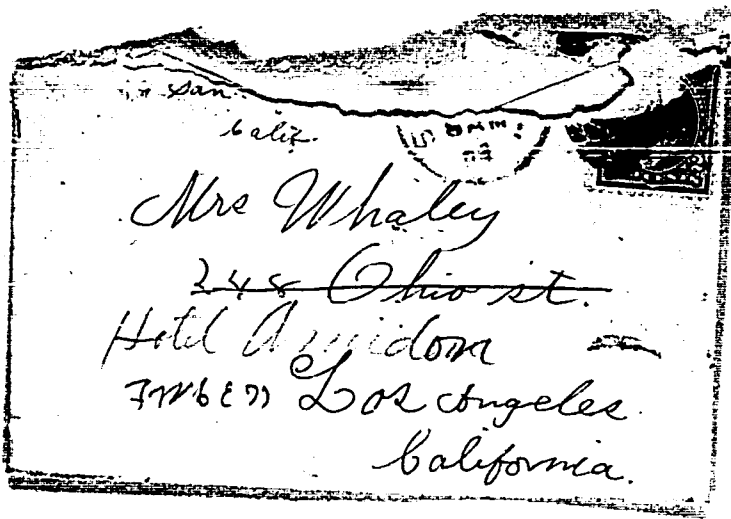 San
Calif.
Mrs Whaley
248 Ohio st.
Hotel
Los Angeles
California.